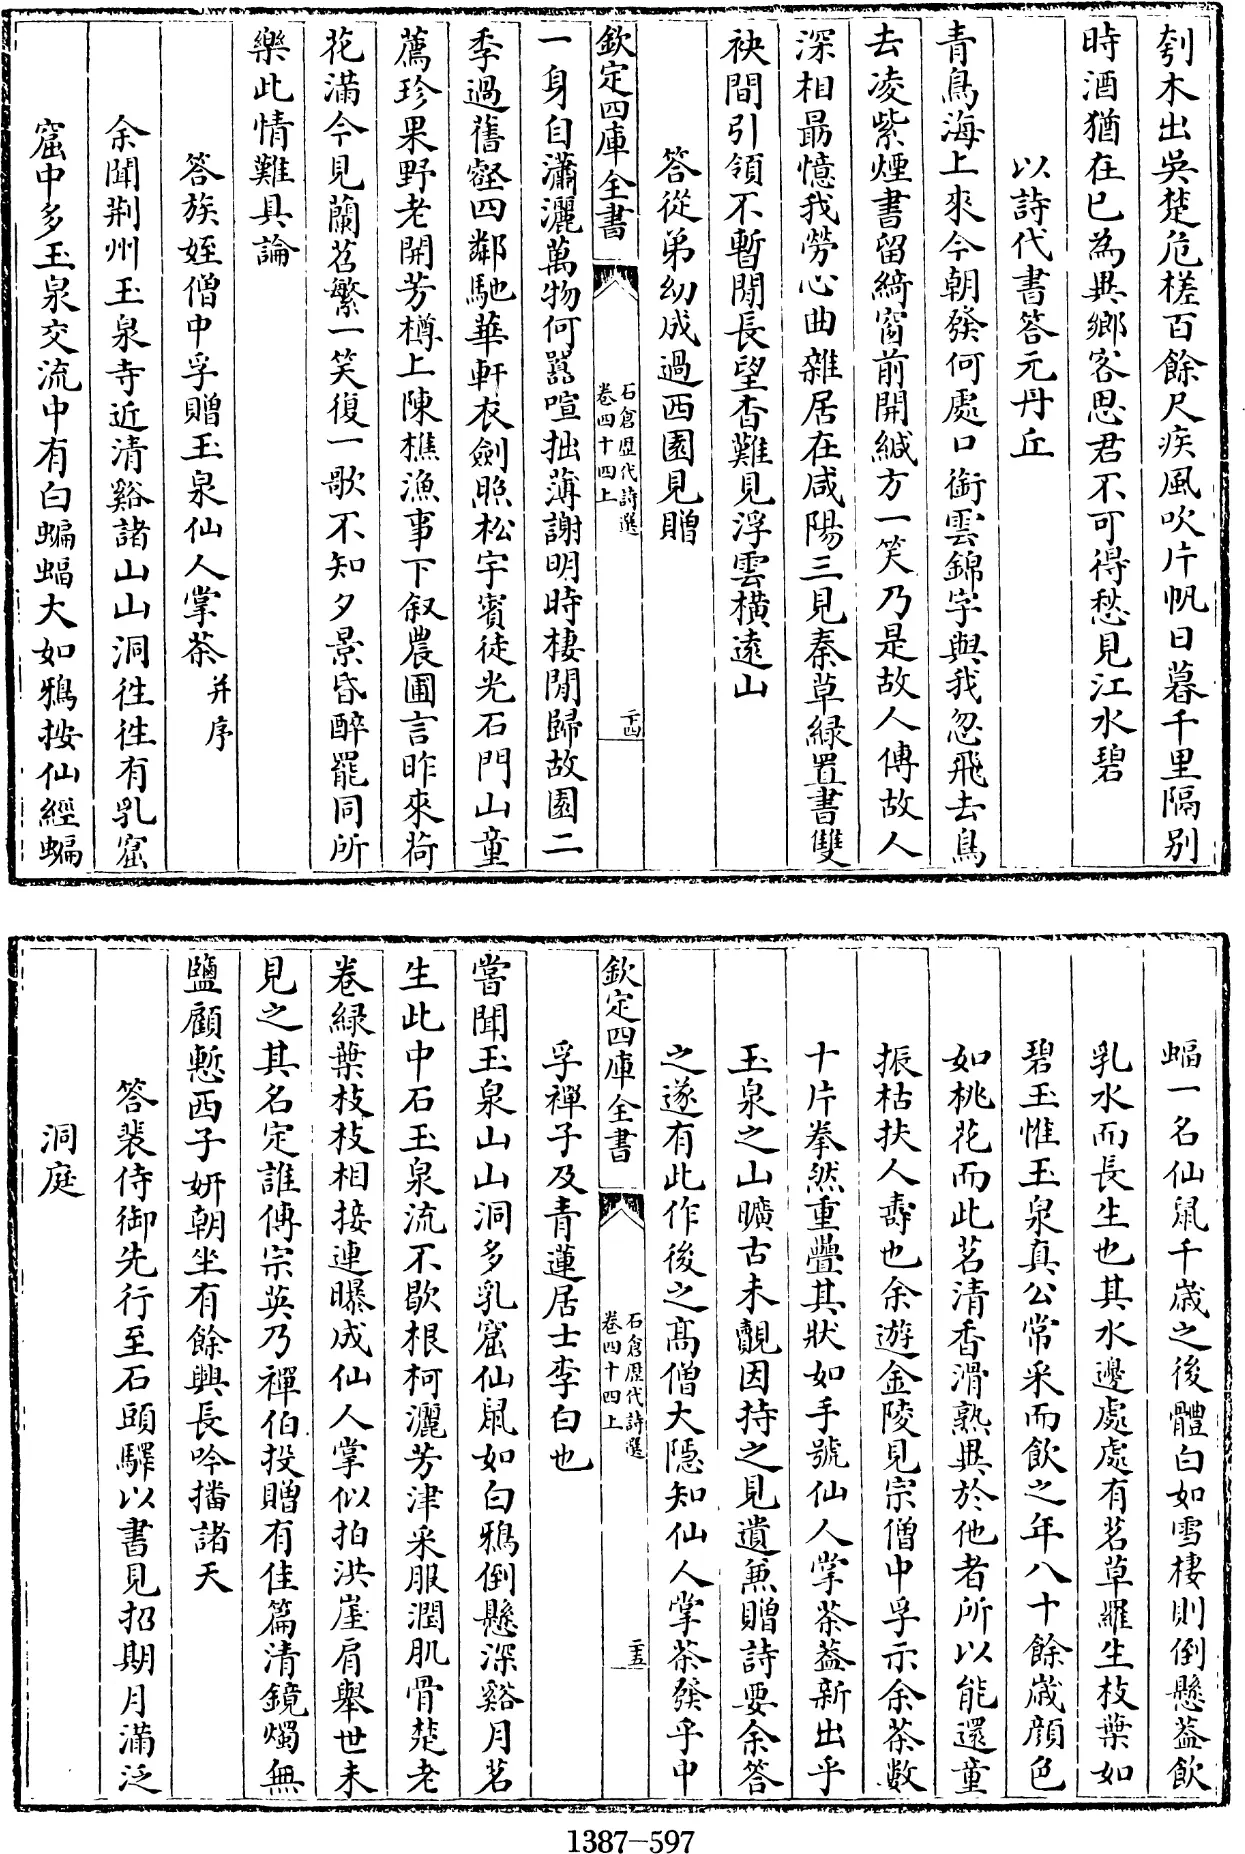 刳木出吳楚危槎百餘尺疾風吹片帆日暮千里隔别
時酒猶在已為異鄉客思君不可得愁見江水碧
以詩代書答元丹丘
青鳥海上來今朝發何處口銜雲錦字與我忽飛去鳥
去凌紫煙書留綺窗前開緘方一笑乃是故人傳故人
深相朂憶我勞心曲離居在咸陽三見秦草緑置書雙
袂間引領不暫閒長望杳難見浮雲横遠山
答從弟幼成過西園見贈
欽定四庫全書
石倉歴代詩選
卷四十四上
二十四
一身自瀟灑萬物何囂喧拙薄謝明時棲閒歸故園二
季過舊壑四鄰馳華軒衣劍照松宇賓徒光石門山童
薦珍果野老開芳樽上陳樵漁事下叙農圃言昨來荷
花滿今見蘭苕繁一笑復一歌不知夕景昏醉罷同所
樂此情難具論
答族姪僧中孚贈玉泉仙人掌茶并序
余聞荆州玉泉寺近清谿諸山山洞徃徃有乳窟
窟中多玉泉交流中有白蝙蝠大如鴉按仙經蝙
蝠一名仙鼠千嵗之後體白如雪棲則倒懸葢飲
乳水而長生也其水邊處處有茗草羅生枝葉如
碧玉惟玉泉真公常采而飲之年八十餘嵗顔色
如桃花而此茗清香滑熟異於他者所以能還童
振枯扶人壽也余遊金陵見宗僧中孚示余茶數
十片拳然重疊其狀如手號仙人掌茶葢新出乎
玉泉之山曠古未覿因持之見遺兼贈詩要余答
之遂有此作後之髙僧大隱知仙人掌茶發乎中
欽定四庫全書
石倉歴代詩選
卷四十四上
二十五
孚禪子及青蓮居士李白也
嘗聞玉泉山山洞多乳窟仙鼠如白鴉倒懸深谿月茗
生此中石玉泉流不歇根柯灑芳津采服潤肌骨楚老
卷緑葉枝枝相接連曝成仙人掌似拍洪崖肩舉世未
見之其名定誰傳宗英乃禪伯投贈有佳篇清鏡燭無
鹽顧慙西子妍朝坐有餘興長吟播諸天
答裴侍御先行至石頭驛以書見招期月滿泛
洞庭
1387-597